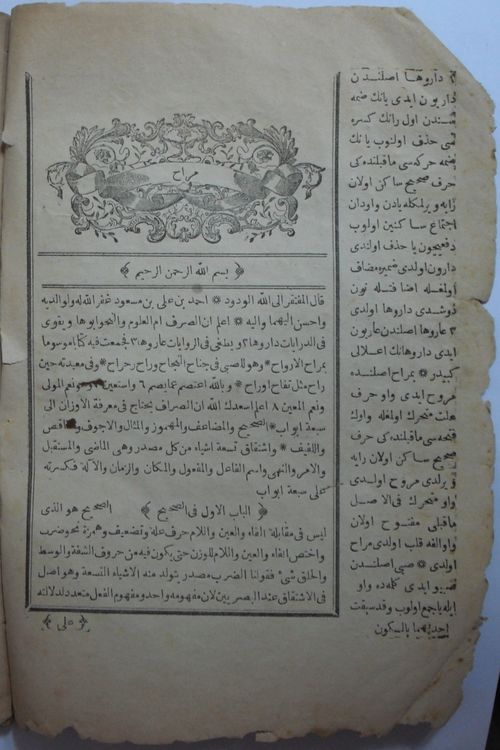 مراح
﴿ بسم الله الرحمن الرحيم ﴾
قال المفتقر الى الله الودود ❋ احمد بن على بن مسعود غفر الله له ولوالديه
واحسن اليهما واليه ❋ اعلم ان الصرف ام العلوم والنحو ابوها ❋ ويقوى
فى الدرايات داروها ٢ ويطغى فى الروايات عاروها ٣ فجمعت فيه كتابا موسوما
بمراح الارواح ❋ وهو للصبى فى جناح النجاح وراح رحراح ❋ وفى معيدته حين
راح مثل تفاح اوراح ❋ وبالله اعتصم عما يصم ٦ واستعين ونعم المولى
ونعم المعين ٨ اعلم اسعدك الله ان الصراف يحتاج فى معرفة الاوزان الى
سبعة ابواب ❋ الصحيح والمضاعف والمهموز والمثال والاجوف والناقص
واللفيف ❋ واشتقاق تسعة اشياء من كل مصدر وهى الماضى والمستقبل
والامر والنهى واسم الفاعل والمفعول والمكان والزمان والآلة فكسرته
على سبعة ابواب
﴿ الباب الاول فى الصحيح ﴾ الصحيح هو الذى
ليس فى مقابلة الفاء والعين واللام حرف علة وتضعيف وهمزة نحو ضرب
واختص الفاء والعين واللام للوزن حتى يكون فيه من حروف الشفة والوسط
والحلق شئ ❋ فقولنا الضرب مصدر يتولد منه الاشياء التسعة وهو اصل
فى الاشتقاق عند البصريين لان مفهومه واحد ومفهوم الفعل متعدد لدلالته
﴿ على ﴾
٢ داروها اصلندن
داريون ايدى يانك ضمه
سندن اول رانك كسره
سى حذف اولنوب يانك
ضمه حركه سى ماقبلنده كى
حرف صحيح ساكن اولان
رايه ويرلمكله يادن واودان
اجتماع ساكنين اولوب
دفعيچون يا حذف اولندى
دارون اولدى ضميره مضاف
اولمغله اضافتله نون
دوشدى داروها اولدى
٣ عاروها اصلندن عاريون
ايدى داروهانك اعلالى
كبيدر ❋ بمراح اصلنده
مروح ايدى واو حرف
علت متحرك اولمغله واوك
فتحه سى ماقبلنده كى حرف
صحيح ساكن اولان رايه
ويرلدى مروح اولدى
واو متحرك فى الاصل
ماقبلى مفتوح اولان
واو الفه قلب اولدى مراح
اولدى ❋ صبى اصلندن
صبيو ايدى كلمه ده واو
ايله يا جمع اولوب وقد سبقت
احديهما بالسكون